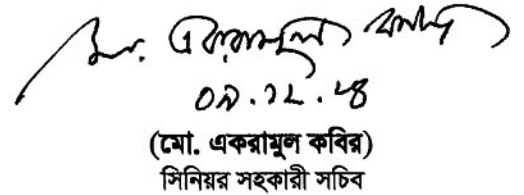 মো. একরামুল কবির
০৯.১২.২৪
(মো. একরামুল কবির)
সিনিয়র সহকারী সচিব